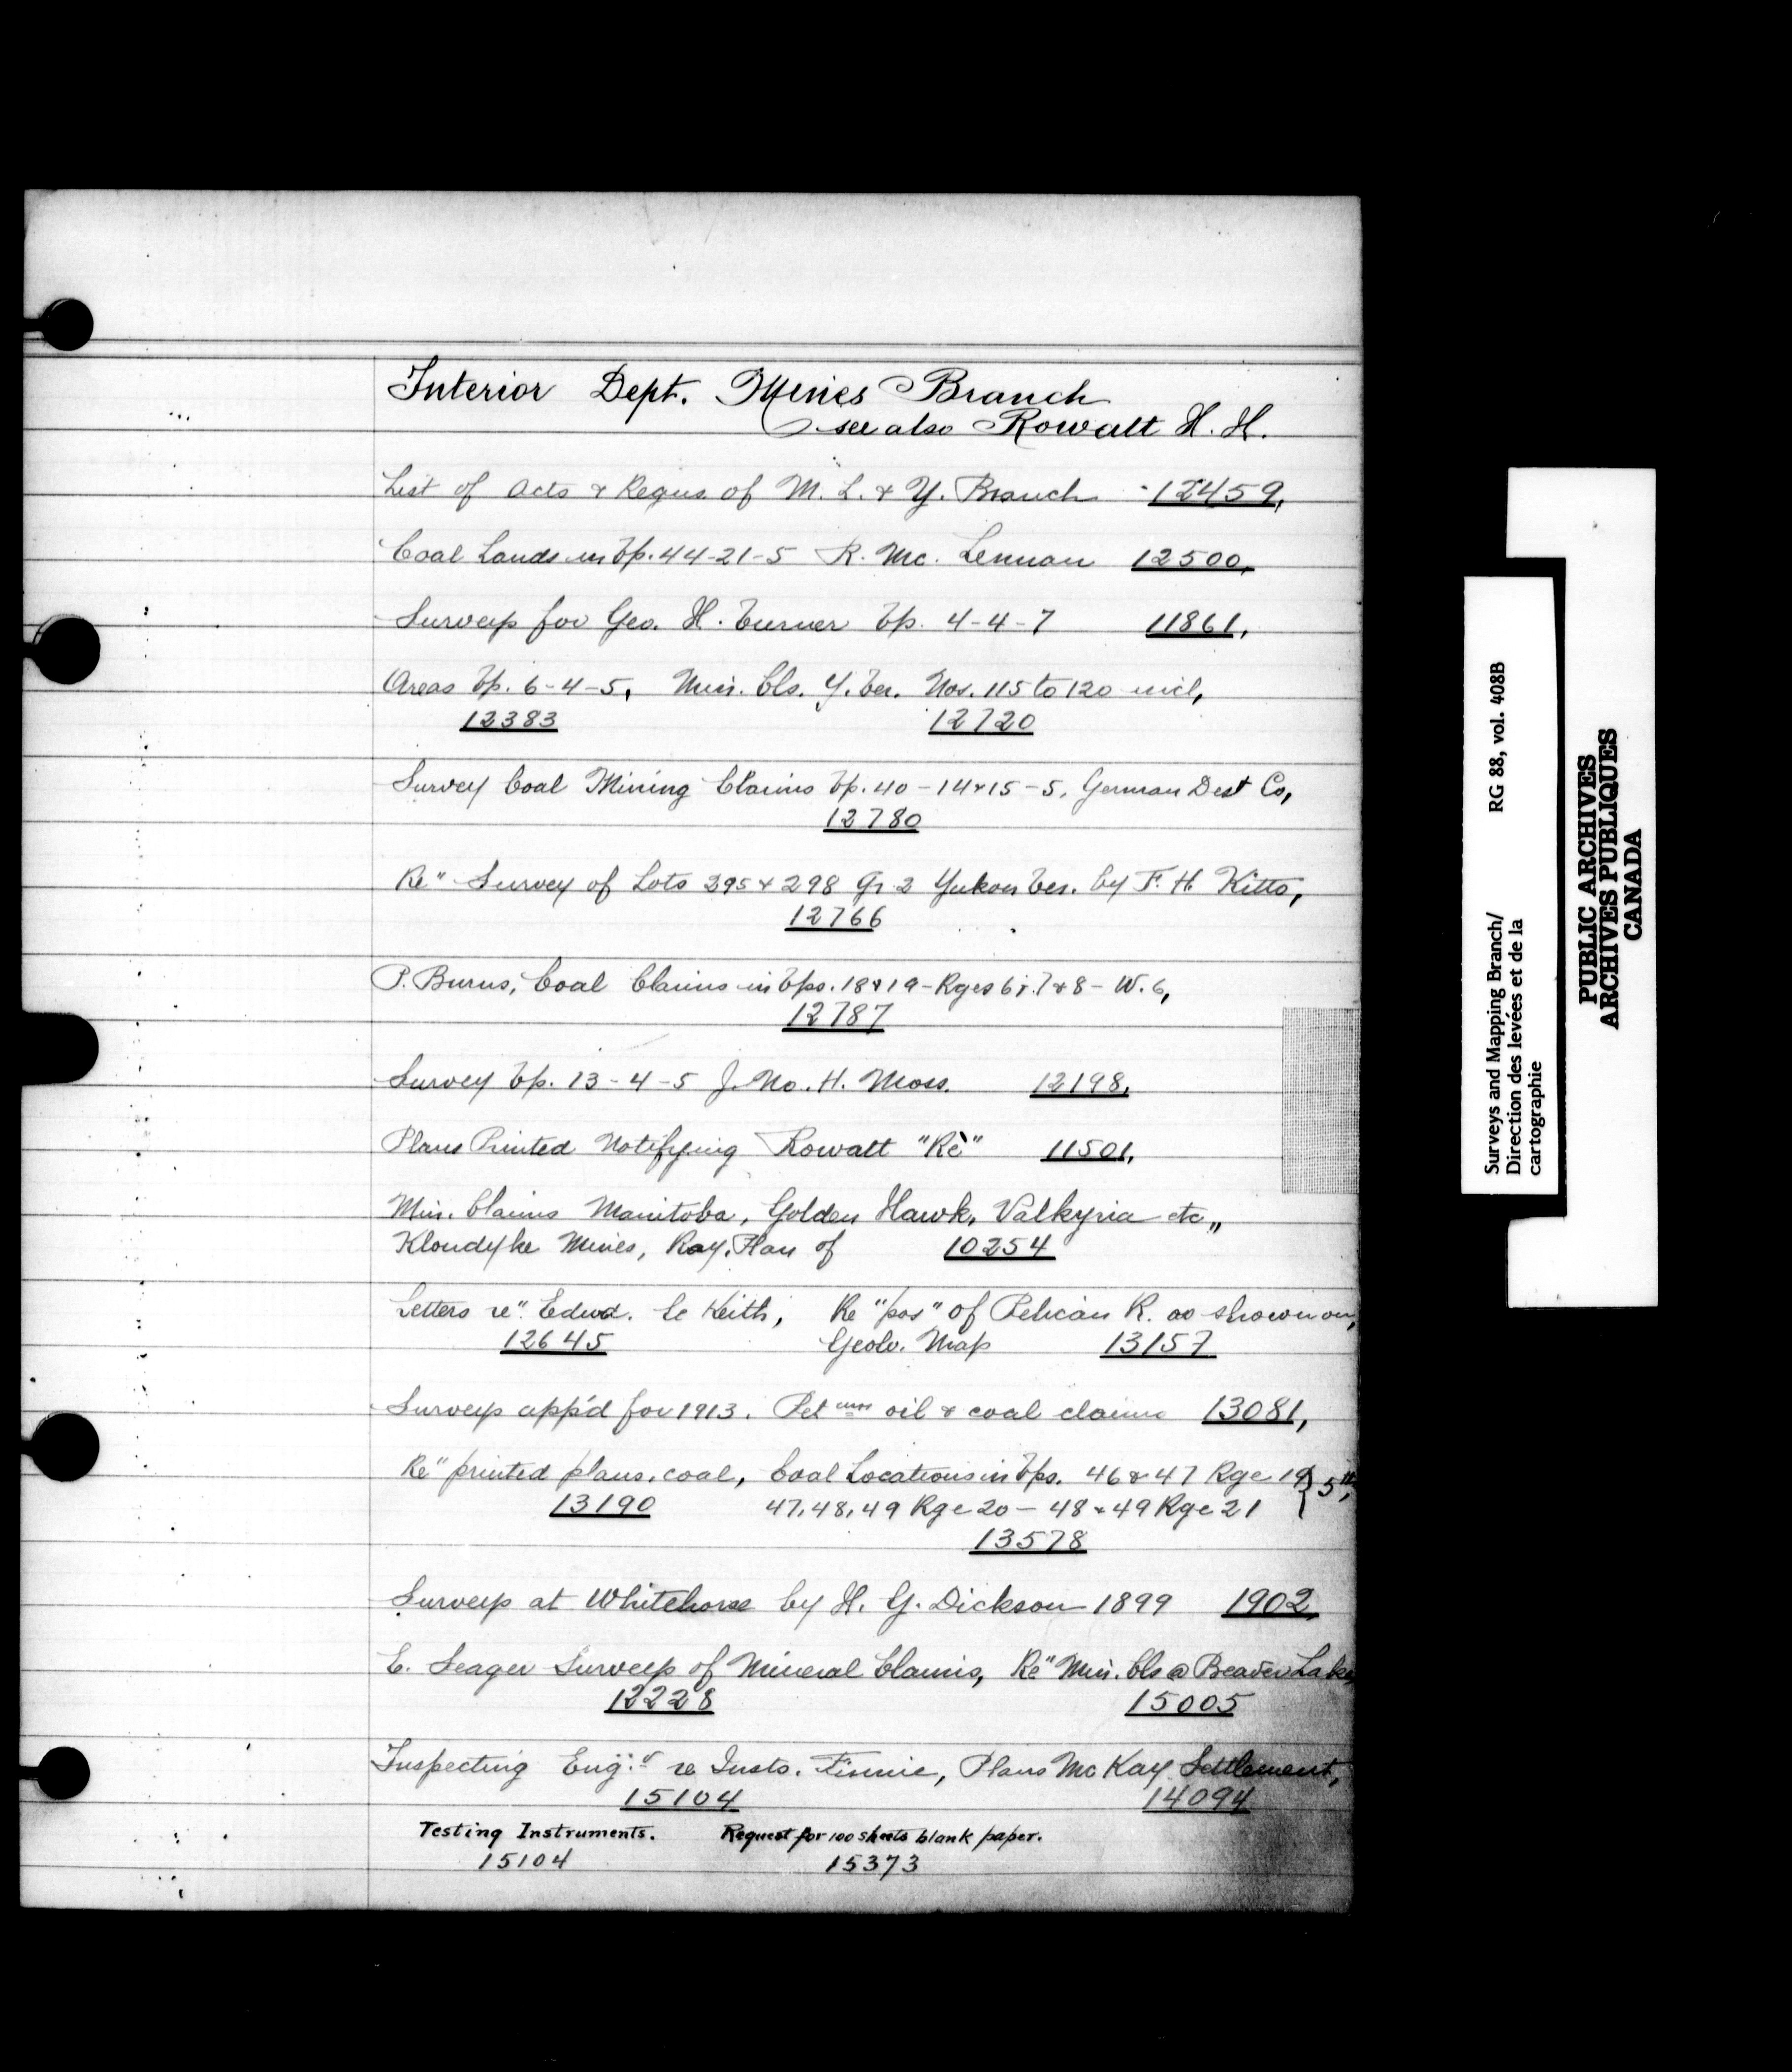 Interior Dept. Mines Branch
see also Rowatt H. H.
List of Acts & Regus. of M. L. & Y. Branch 12459,
Coal Lands in Tp. 44-21-5 R. Mc. Lennan 12500,
Surveys for Geo. H. Turner Tp. 4-4-7 11861,
Areas Tp. 6-4-5, Min. Cls. Y. Ter. Nos. 115 to 120 incl,
12383 12720
Survey Coal Mining Claims Tp. 40-14&15-5, German Devt Co,
12780
Re" Survey of Lots 295 & 298 Gr. 2 Yukon Ter. by F. H. Kitto,
12766
P. Burns, Coal Claims in Tps. 18&19-Rges 6 & 7 & 8 - W. 6,
12787
Survey Tp. 13-4-5 J. No. H. Moss. 12198,
Plans Printed Notifying Rowatt "Re" 11501,
Min. Claims Manitoba, Golden Hawk, Valkyria etc,,
Klondyke Mines, Ray. Plan of 10254
Letters re" Edwd. C Keith, Re "pos" of Pelican R. as shown on,
12645 Geolo. Map 13157
Surveys app'd for 1913. Pet eum oil & coal claims 13081,
Re" printed plans, coal, Coal Locations in Tps. 46 & 47 Rge 19 } 5th,
13190 47, 48, 49 Rge 20 - 48 & 49 Rge 21
13578
Surveys at Whitehorse by H. G. Dickson 1899 1902,
E. Seager Surveys of Mineral Claims, Re" Min. Cls @ Beaver Lake,
12228 15005
Inspecting Eng:r re Insts. Finnie, Plans McKay Settlement,
15104 14094
Testing Instruments. Request for 100 sheets blank paper.
15104 15373
Surveys and Mapping Branch/ RG 88, vol. 408B
Direction des levées et de la
cartographie
PUBLIC ARCHIVES
ARCHIVES PUBLIQUES
CANADA